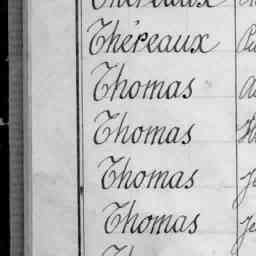 Théreaux
Théreaux
Thomas
Thomas
Thomas
Thomas